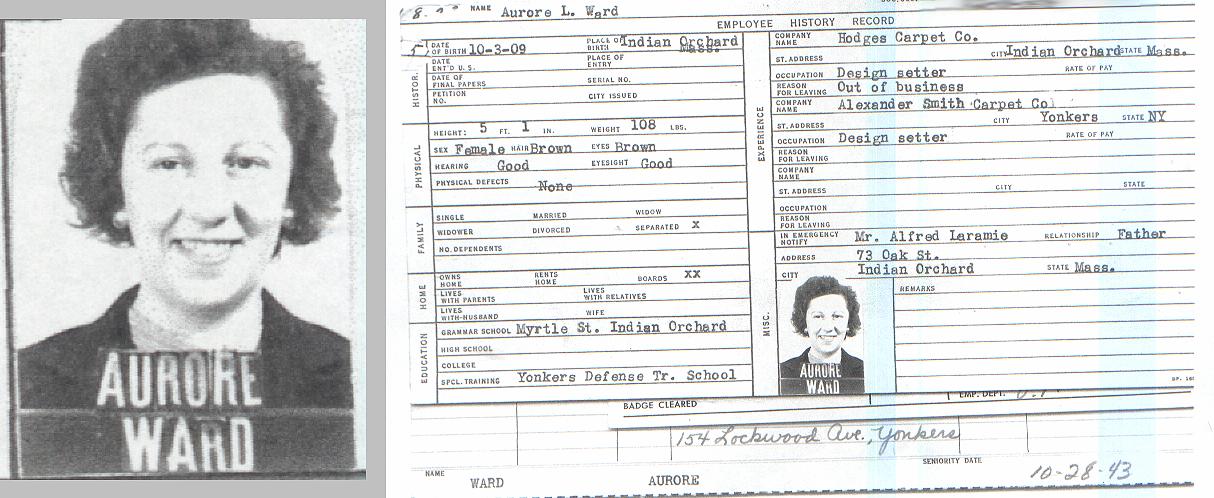 AURORE
WARD
NAME Aurore L. Ward
EMPLOYEE HISTORY RECORD
HISTOR.
DATE OF BIRTH 10-3-09 PLACE OF BIRTH Indian Orchard Mass.
DATE ENT'D U.S. PLACE OF ENTRY
DATE OF FINAL PAPERS SERIAL NO.
PETITION NO. CITY ISSUED
PHYSICAL
HEIGHT: 5 FT. 1 IN. WEIGHT 108 LBS.
SEX Female HAIR Brown EYES Brown
HEARING Good EYESIGHT Good
PHYSICAL DEFECTS None
FAMILY
SINGLE MARRIED WIDOW
WIDOWER DIVORCED SEPARATED X
NO. DEPENDENTS
HOME
OWNS HOME RENTS HOME BOARDS XX
LIVES WITH PARENTS LIVES WITH RELATIVES
LIVES WITH-HUSBAND WIFE
EDUCATION
GRAMMAR SCHOOL Myrtle St. Indian Orchard
HIGH SCHOOL
COLLEGE
SPCL. TRAINING Yonkers Defense Tr. School
EXPERIENCE
COMPANY NAME Hodges Carpet Co.
ST. ADDRESS CITY Indian Orchard STATE Mass.
OCCUPATION Design setter RATE OF PAY
REASON FOR LEAVING Out of business
COMPANY NAME Alexander Smith Carpet Co.
ST. ADDRESS CITY Yonkers STATE NY
OCCUPATION Design setter RATE OF PAY
REASON FOR LEAVING
COMPANY NAME
ST. ADDRESS CITY STATE
OCCUPATION
REASON FOR LEAVING
MISC.
IN EMERGENCY NOTIFY Mr. Alfred Laramie RELATIONSHIP Father
ADDRESS 73 Oak St.
CITY Indian Orchard STATE Mass.
REMARKS
AURORE
WARD
BADGE CLEARED EMP. DEPT.
154 Lockwood Ave., Yonkers
SENIORITY DATE 10-28-43
NAME WARD AURORE